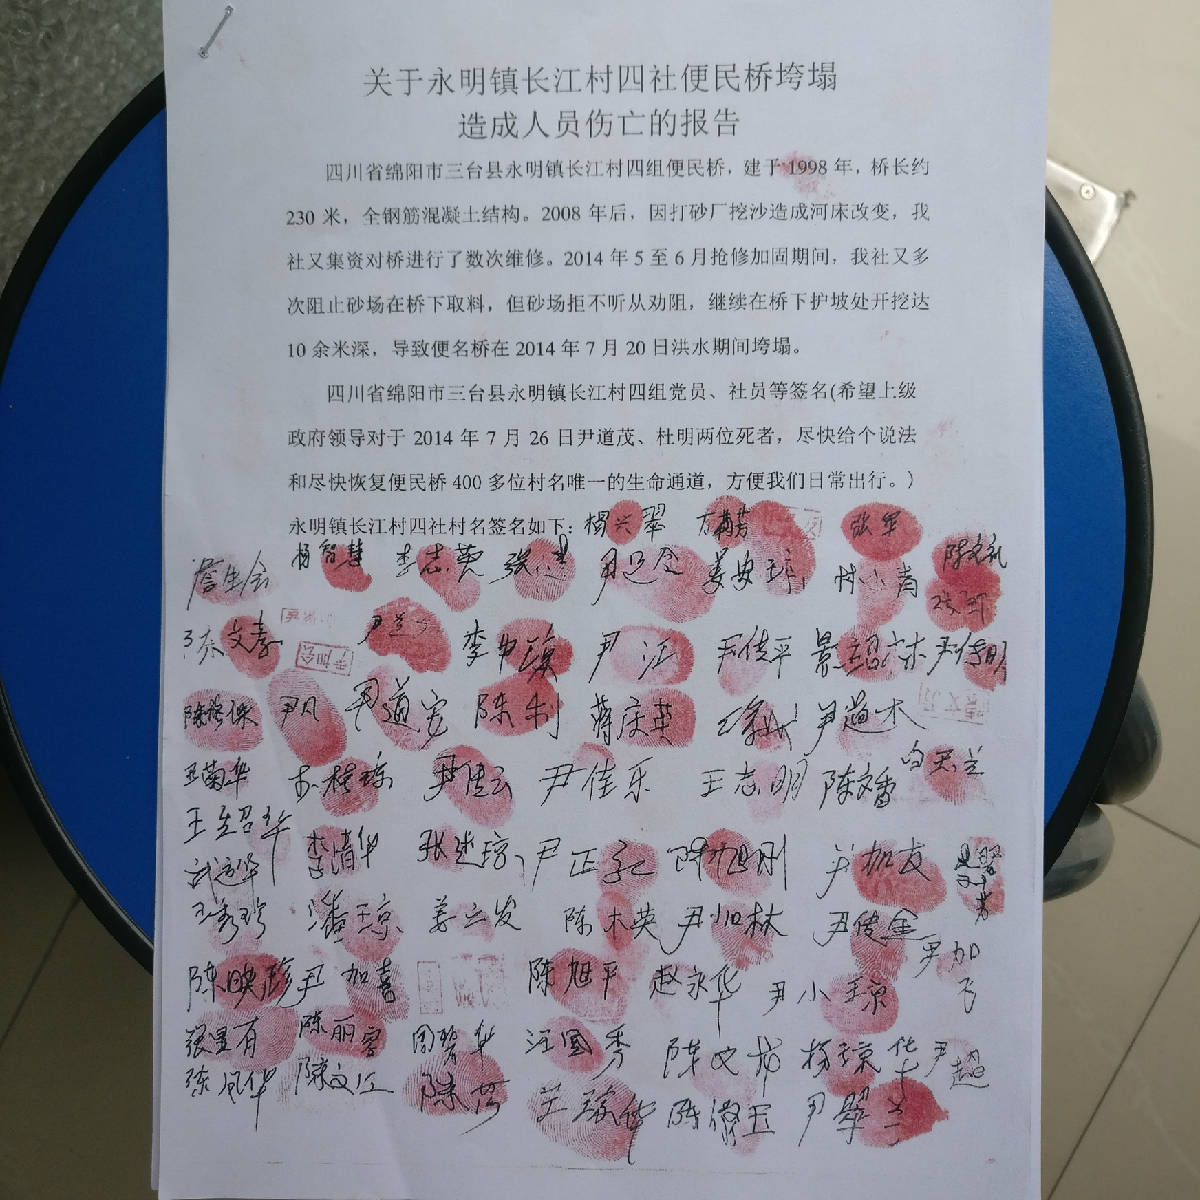 关于永明镇长江村四社便民桥垮塌
造成人员伤亡的报告
四川省绵阳市三台县永明镇长江村四组便民桥，建于1998年，桥长约
230米，全钢筋混凝土结构。2008年后，因打砂厂挖沙造成河床改变，我
社又集资对桥进行了数次维修。2014年5至6月抢修加固期间，我社又多
次阻止砂场在桥下取料，但砂场拒不听从劝阻，继续在桥下护坡处开挖达
10余米深，导致便名桥在2014年7月20日洪水期间垮塌。
四川省绵阳市三台县永明镇长江村四组党员、社员等签名(希望上级
政府领导对于2014年7月26日尹道茂、杜明两位死者，尽快给个说法
和尽快恢复便民桥400多位村名唯一的生命通道，方便我们日常出行。）
永明镇长江村四社村名签名如下：杨兴翠 张军
杨智慧 李志英 陈文礼
陈文素 尹江 尹佳平 景绍林 尹传明
尹凡 尹道容 陈利 蒋庆英 尹道木
王菊华 尹传云 尹佳乐 王志明 陈文香
王绍华 李清华 尹正 陈旭刚 尹加友
王秀珍 潘琼 姜立发 陈木英 尹加林 尹传金
陈映珍 尹加喜 陈旭平 赵永华 尹小琼 尹加飞
张呈有 陈丽容 周碧华 汪国秀 陈文龙 杨琼华 尹超
陈凤华 陈文江 陈芬 陈俊玉 尹翠兰